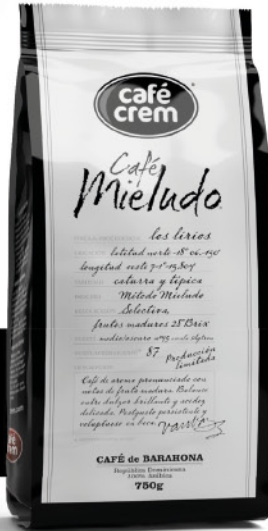 café
crem
Café
Mieludo
los lirios
latitud norte 18°
longitud oeste
caturra y típica
Método Mieludo
Selectiva,
frutos maduros 25 Brix
87
Producción
limitada
Café de aroma pronunciado con
notas de fruta madura. Balance
entre dulzor brillante y acidez
delicada. Postgusto persistente y
voluptuoso en boca.
CAFÉ de BARAHONA
República Dominicana
100% Arábica
750g
café
crem